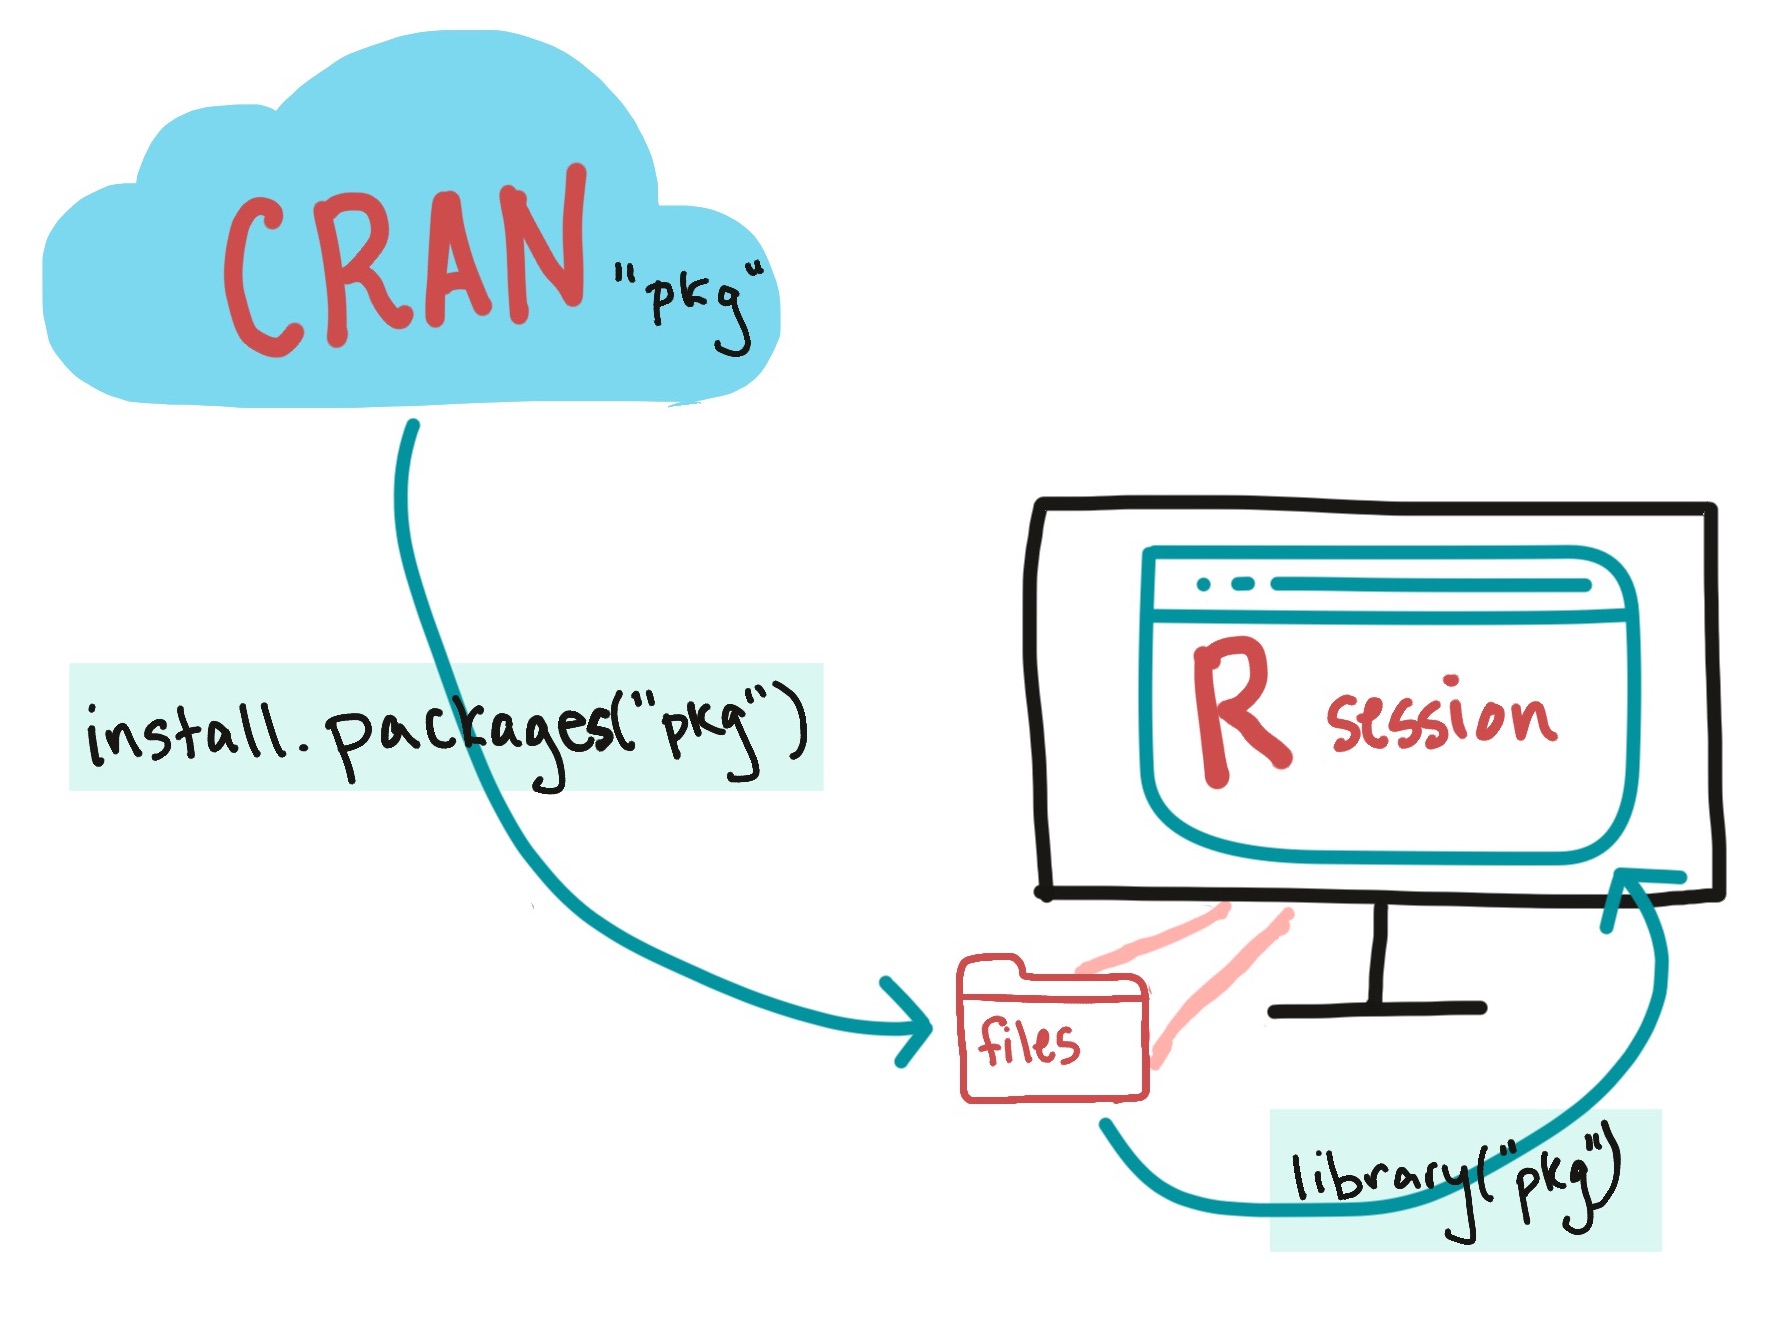 CRAN
"pkg"
install.packages("pkg")
R session
files
library("pkg")